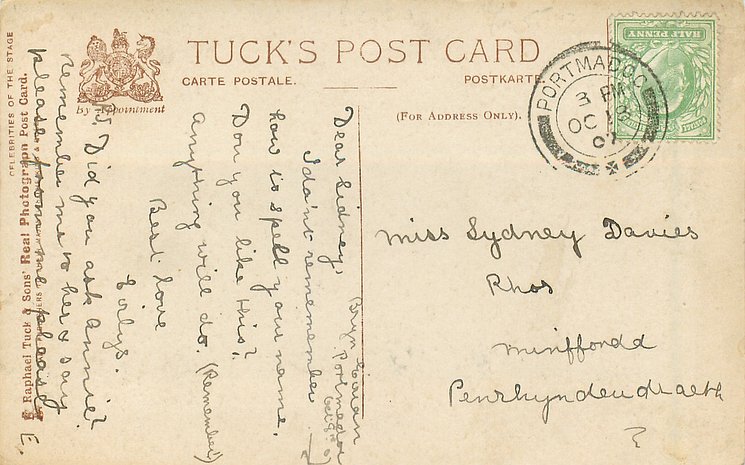 TUCK'S POST CARD
CARTE POSTALE.
POSTKARTE
By Appointment
(FOR ADDRESS ONLY).
CELEBRITIES OF THE STAGE
Raphael Tuck & Sons' Real Photograph Post Card.
PORTMADOC
3 PM
OC
07
HALF PENNY
Miss Sydney Davies
Rhos
Minffordd
Penrhyndeudraeth
Bryn
Portmadoc
Dear Sidney,
I don't remember
how to spell your name.
Don you like this?
Anything will do. (Remember)
Best love
Eorlys.
Did you ask Annie?
Remember me to her & say
please from me please
E.